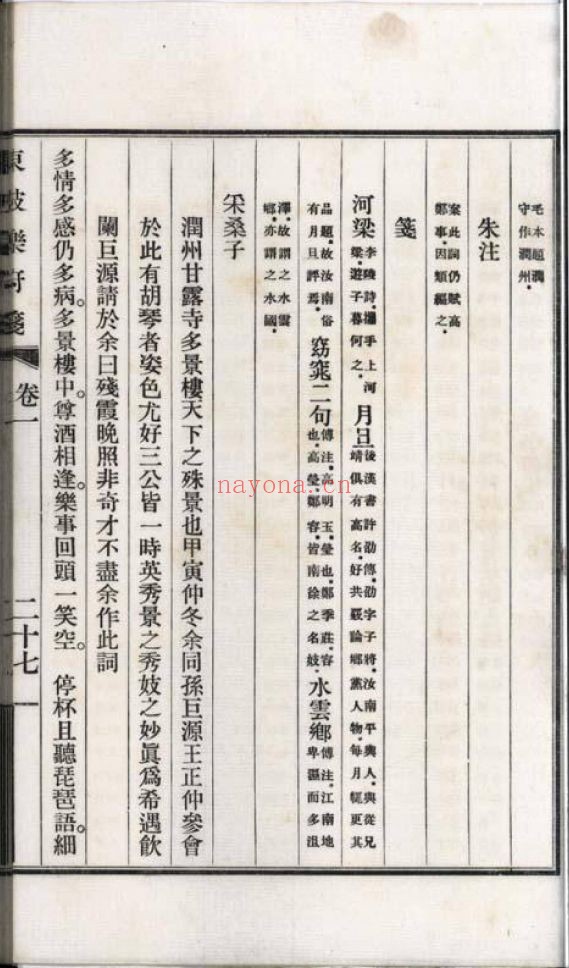 毛本題潤
守作潤州。
朱注
案此詞仍賦高
鄭事。因類編之。
箋
河梁李陵詩。攜手上河
梁。遊子暮何之。月旦後漢書許劭傳。劭字子將。汝南平輿人。與從兄
靖俱有高名。好共覈論鄉黨人物。每月輒更其
品題。故汝南俗
有月旦評焉。窈窕二句傅注。高明玉瑩也。鄭季莊。容
也。高瑩。鄭容。皆南徐之名妓。水雲鄉傅注。江南地
卑濕而多沮
澤。故謂之水雲
鄉。亦謂之水國。
采桑子
潤州甘露寺多景樓天下之殊景也甲寅仲冬余同孫巨源王正仲參會
於此有胡琴者姿色尤好三公皆一時英秀景之秀妓之妙眞爲希遇飲
闌巨源請於余曰殘霞晚照非奇才不盡余作此詞
多情多感仍多病。多景樓中。尊酒相逢。樂事回頭一笑空。　停杯且聽琵琶語。細
東坡樂府箋
卷一
二十七
nayona.cn